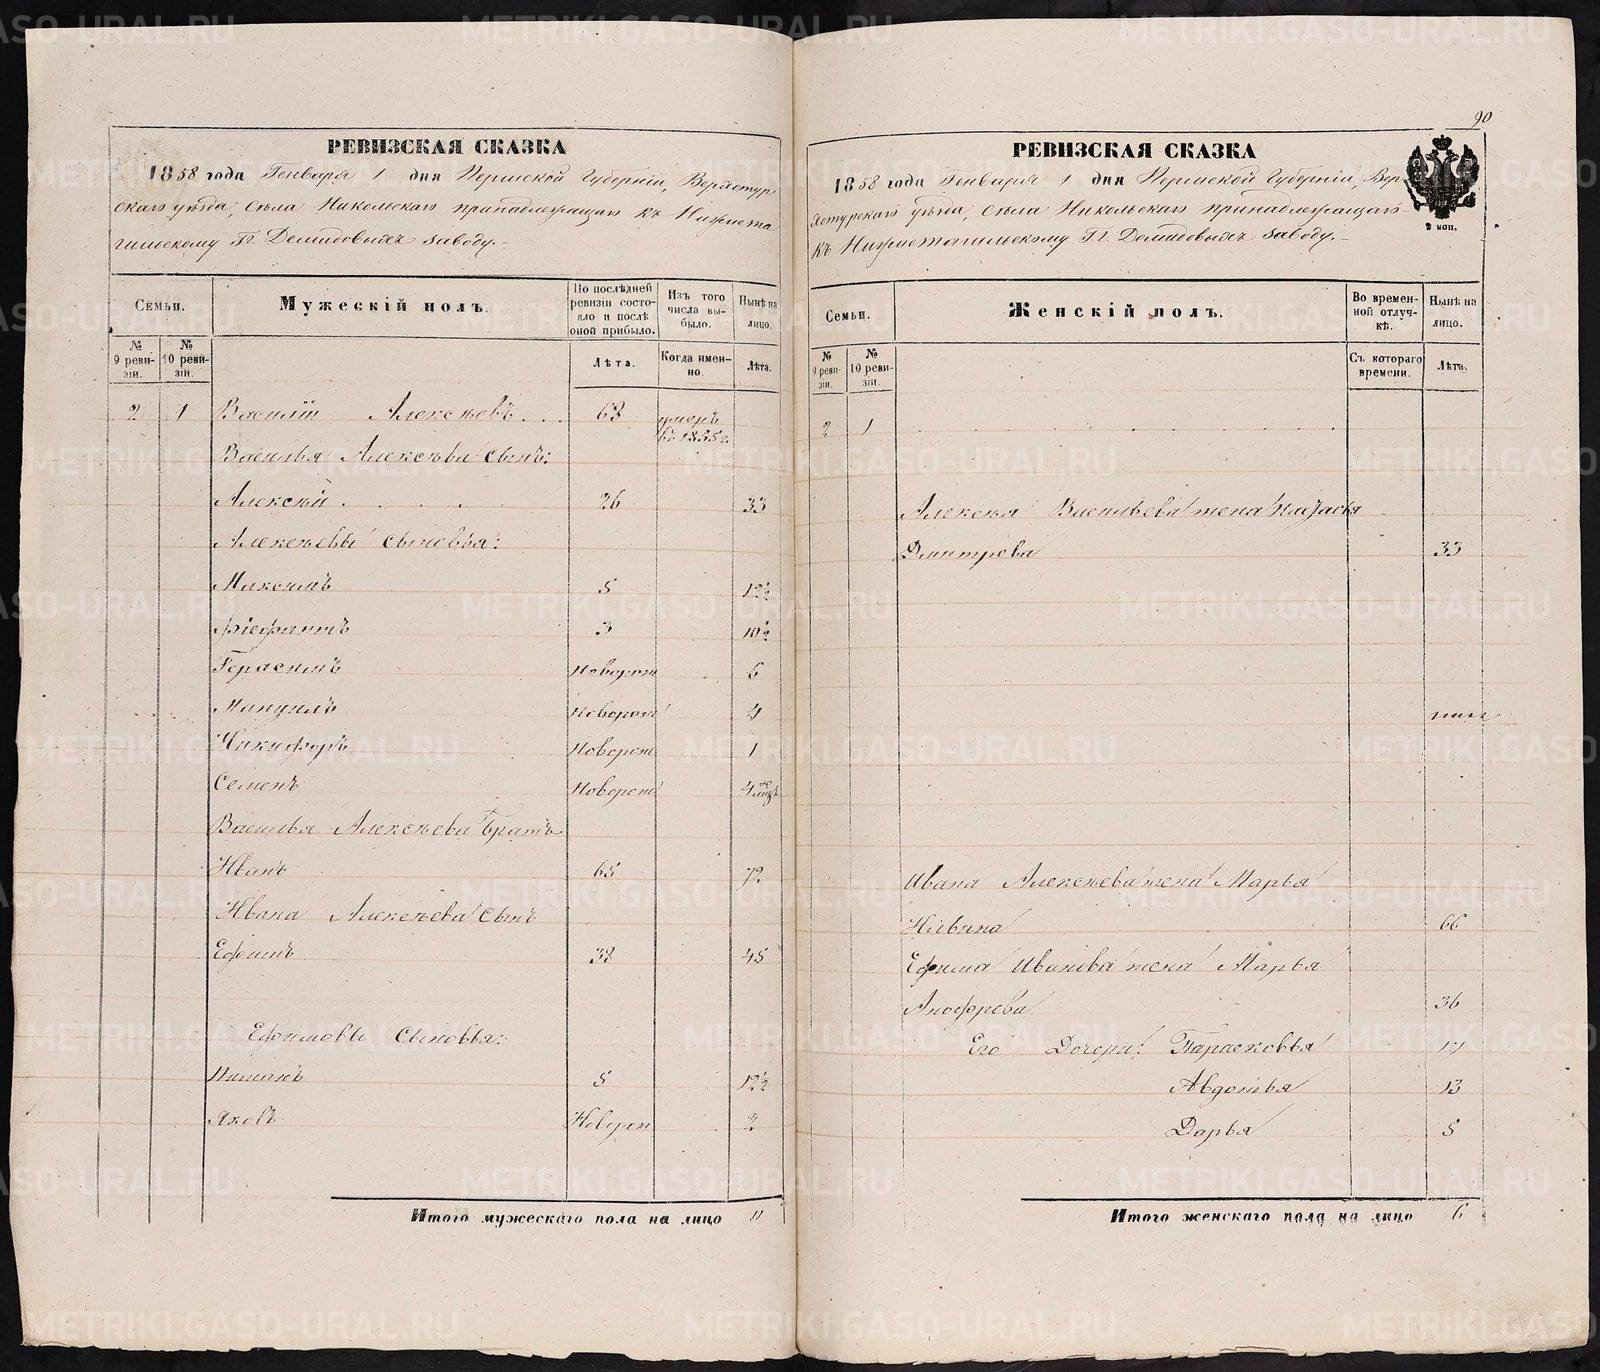 РЕВИЗСКАЯ СКАЗКА
1858 года Генваря 1 дня Пермской Губерніи, Верхотур-
скаго уѣзда, села Никольскаго принадлежащаго къ Нижнета
гильскому Гг. Демидовыхъ заводу.
Семьи.
№ 9 ревизіи.
№ 10 ревизіи.
Мужескій полъ.
По послѣдней ревизіи состояло и послѣ оной прибыло.
Лѣта.
Изъ того числа выбыло.
Когда именно.
Нынѣ на лицо.
Лѣта.
2 1 Василій Алексѣевъ 68 умеръ въ 1855 г.
Василья Алексѣева сынъ:
Алексѣй 26 33
Алексѣевы сыновья:
Максимъ 5 12½
3 10½
Герасимъ Новорож 6
Мануилъ Новорож 4
Никифоръ Новорож 1
Семенъ Новорож 4
Василья Алексѣева братъ
Иванъ 65 72
Ивана Алексѣева сынъ
Ефимъ 38 45
Ефимовы сыновья:
Пиманъ 5 12½
Яковъ Новорож 2
Итого мужескаго пола на лицо 11
90
РЕВИЗСКАЯ СКАЗКА
1858 года Генваря 1 дня Пермской Губерніи, Вер-
хотурскаго уѣзда, села Никольскаго принадлежащаго
къ Нижнетагильскому Гг. Демидовыхъ заводу.
2 коп.
Семьи.
№ 9 ревизіи.
№ 10 ревизіи.
Женскій полъ.
Во временной отлучкѣ.
Съ котораго времени.
Нынѣ на лицо.
Лѣта.
2 1
Алексѣя Васильева жена
Дмитрева 33
Ивана Алексѣева жена Марья
66
Ефима Иванова жена Марья
Анофрева 36
Его Дочери: Парасковья
Авдотья 13
Дарья 5
Итого женскаго пола на лицо 6
METRIKI.GASO-URAL.RU